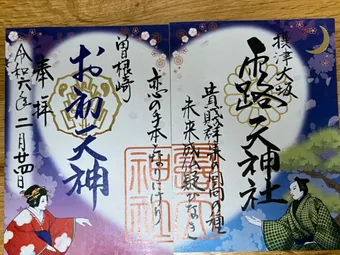 摂津大坂
露天神社
貴賤群集の回向の種
未来成仏疑ひなき
恋の手本となりにけり
曽根崎
お初天神
奉拝
令和六年二月廿四日